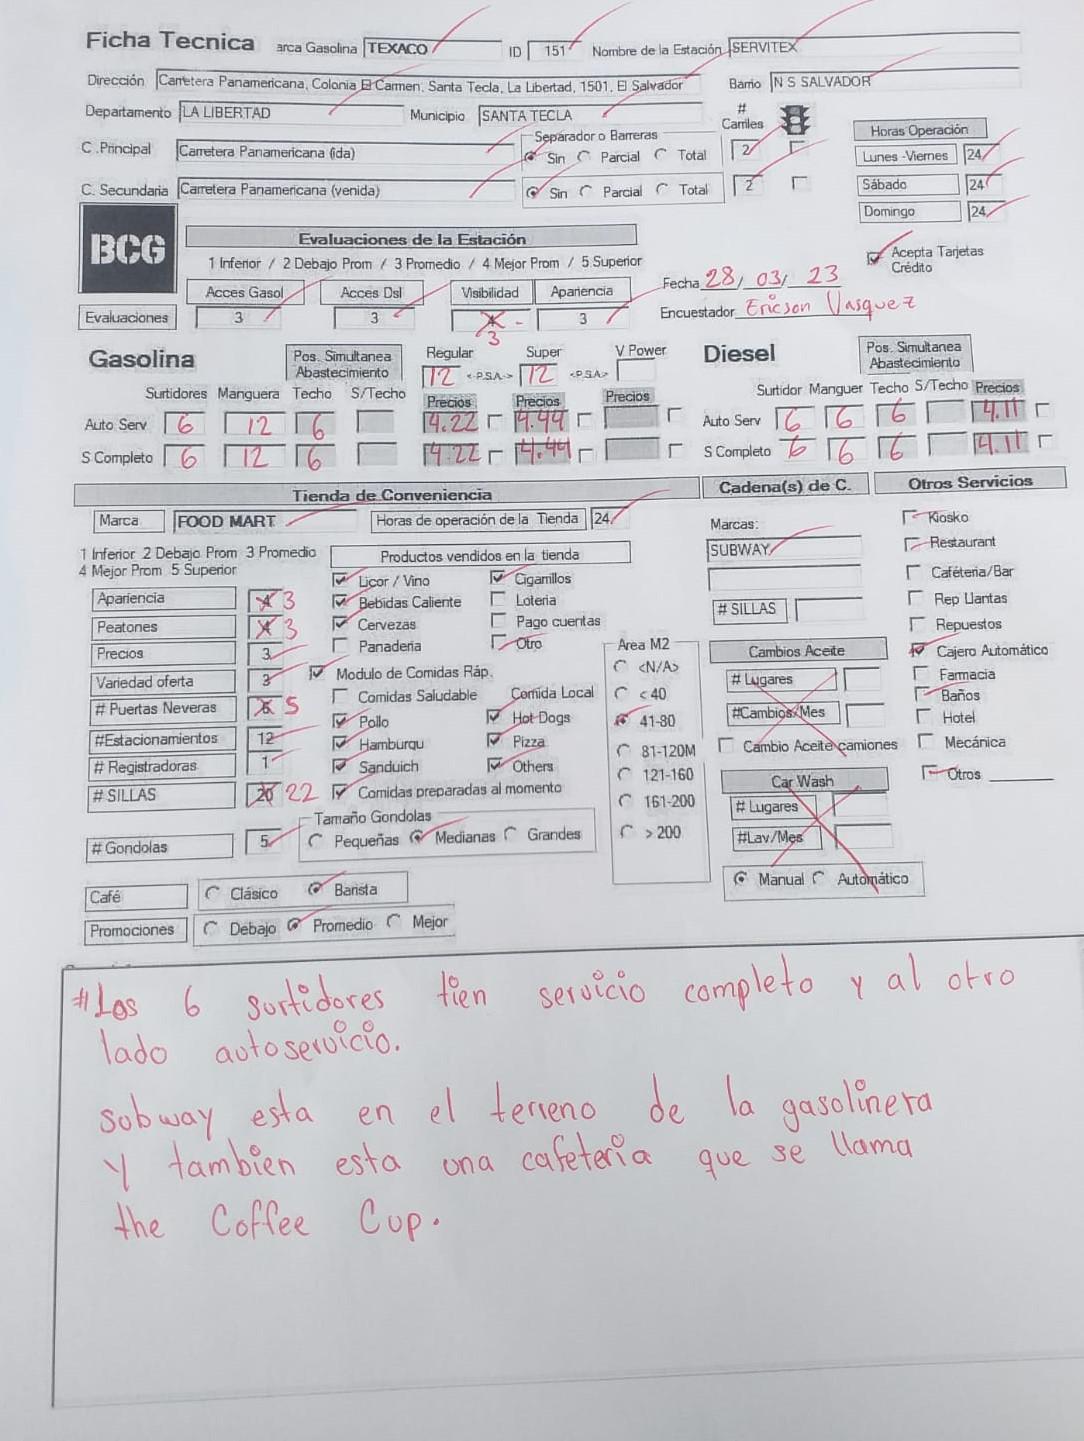 Ficha Tecnica arca Gasolina TEXACO ID 151 Nombre de la Estación SERVITEX
Dirección Carretera Panamericana, Colonia El Carmen, Santa Tecla, La Libertad, 1501, El Salvador Barrio N S SALVADOR
Departamento LA LIBERTAD Municipio SANTA TECLA # Carriles
Separador o Barreras Horas Operación
C .Principal Carretera Panamericana (ida) Sin Parcial Total 2 Lunes -Viernes 24
C. Secundaria Carretera Panamericana (venida) Sin Parcial Total 2 Sábado 24
Domingo 24
BCG Evaluaciones de la Estación
1 Inferior / 2 Debajo Prom / 3 Promedio / 4 Mejor Prom / 5 Superior Acepta Tarjetas Crédito
Acces Gasol Acces Dsl Visibilidad Apariencia Fecha 28/ 03/ 23
Evaluaciones 3 3 3 3 Encuestador Ericson Vasquez
Gasolina Pos. Simultanea Abastecimiento Regular Super V Power Diesel Pos. Simultanea Abastecimiento
12 <-P.S.A.-> 12 <P.S.A>
Surtidores Manguera Techo S/Techo Precios Precios Precios Surtidor Manguer Techo S/Techo Precios
Auto Serv 6 12 6 4.22 4.44 Auto Serv 6 6 6 4.11
S Completo 6 12 6 4.22 4.44 S Completo 6 6 6 4.11
Tienda de Conveniencia Cadena(s) de C. Otros Servicios
Marca FOOD MART Horas de operación de la Tienda 24 Marcas: Kiosko
1 Inferior 2 Debajo Prom 3 Promedio Productos vendidos en la tienda SUBWAY Restaurant
4 Mejor Prom 5 Superior Licor / Vino Cigarrillos Cafétería/Bar
Apariencia 4 3 Bebidas Caliente Loteria # SILLAS Rep Llantas
Peatones 4 3 Cervezas Pago cuentas Repuestos
Precios 3 Panaderia Otro Area M2 Cambios Aceite Cajero Automático
Variedad oferta 3 Modulo de Comidas Ráp. <N/A> # Lugares Farmacia
# Puertas Neveras 5 Comidas Saludable Comida Local < 40 #Cambios/Mes Baños
#Estacionamientos 12 Pollo Hot Dogs 41-80 Hotel
# Registradoras 1 Hamburqu Pizza 81-120M Cambio Aceite camiones Mecánica
# SILLAS 20 22 Sanduich Others 121-160 Car Wash Otros
Comidas preparadas al momento 161-200 # Lugares
Tamaño Gondolas
# Gondolas 5 Pequeñas Medianas Grandes > 200 #Lav/Mes
Café Clásico Barista Manual Automático
Promociones Debajo Promedio Mejor
#Los 6 surtidores tien servicio completo y al otro
lado autoservicio.
subway esta en el terreno de la gasolinera
y tambien esta una cafeteria que se llama
the Coffee Cup.